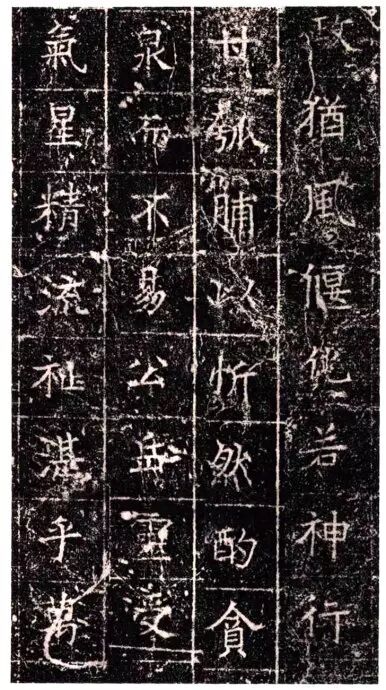 政猶風偃若神行
甘瓠脯以忻然酌貪
泉而不易公岳受
氣星精流祉湛乎萬